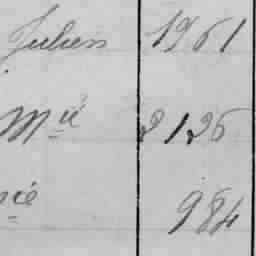 Julien 1961
Mie 2126
cie 984